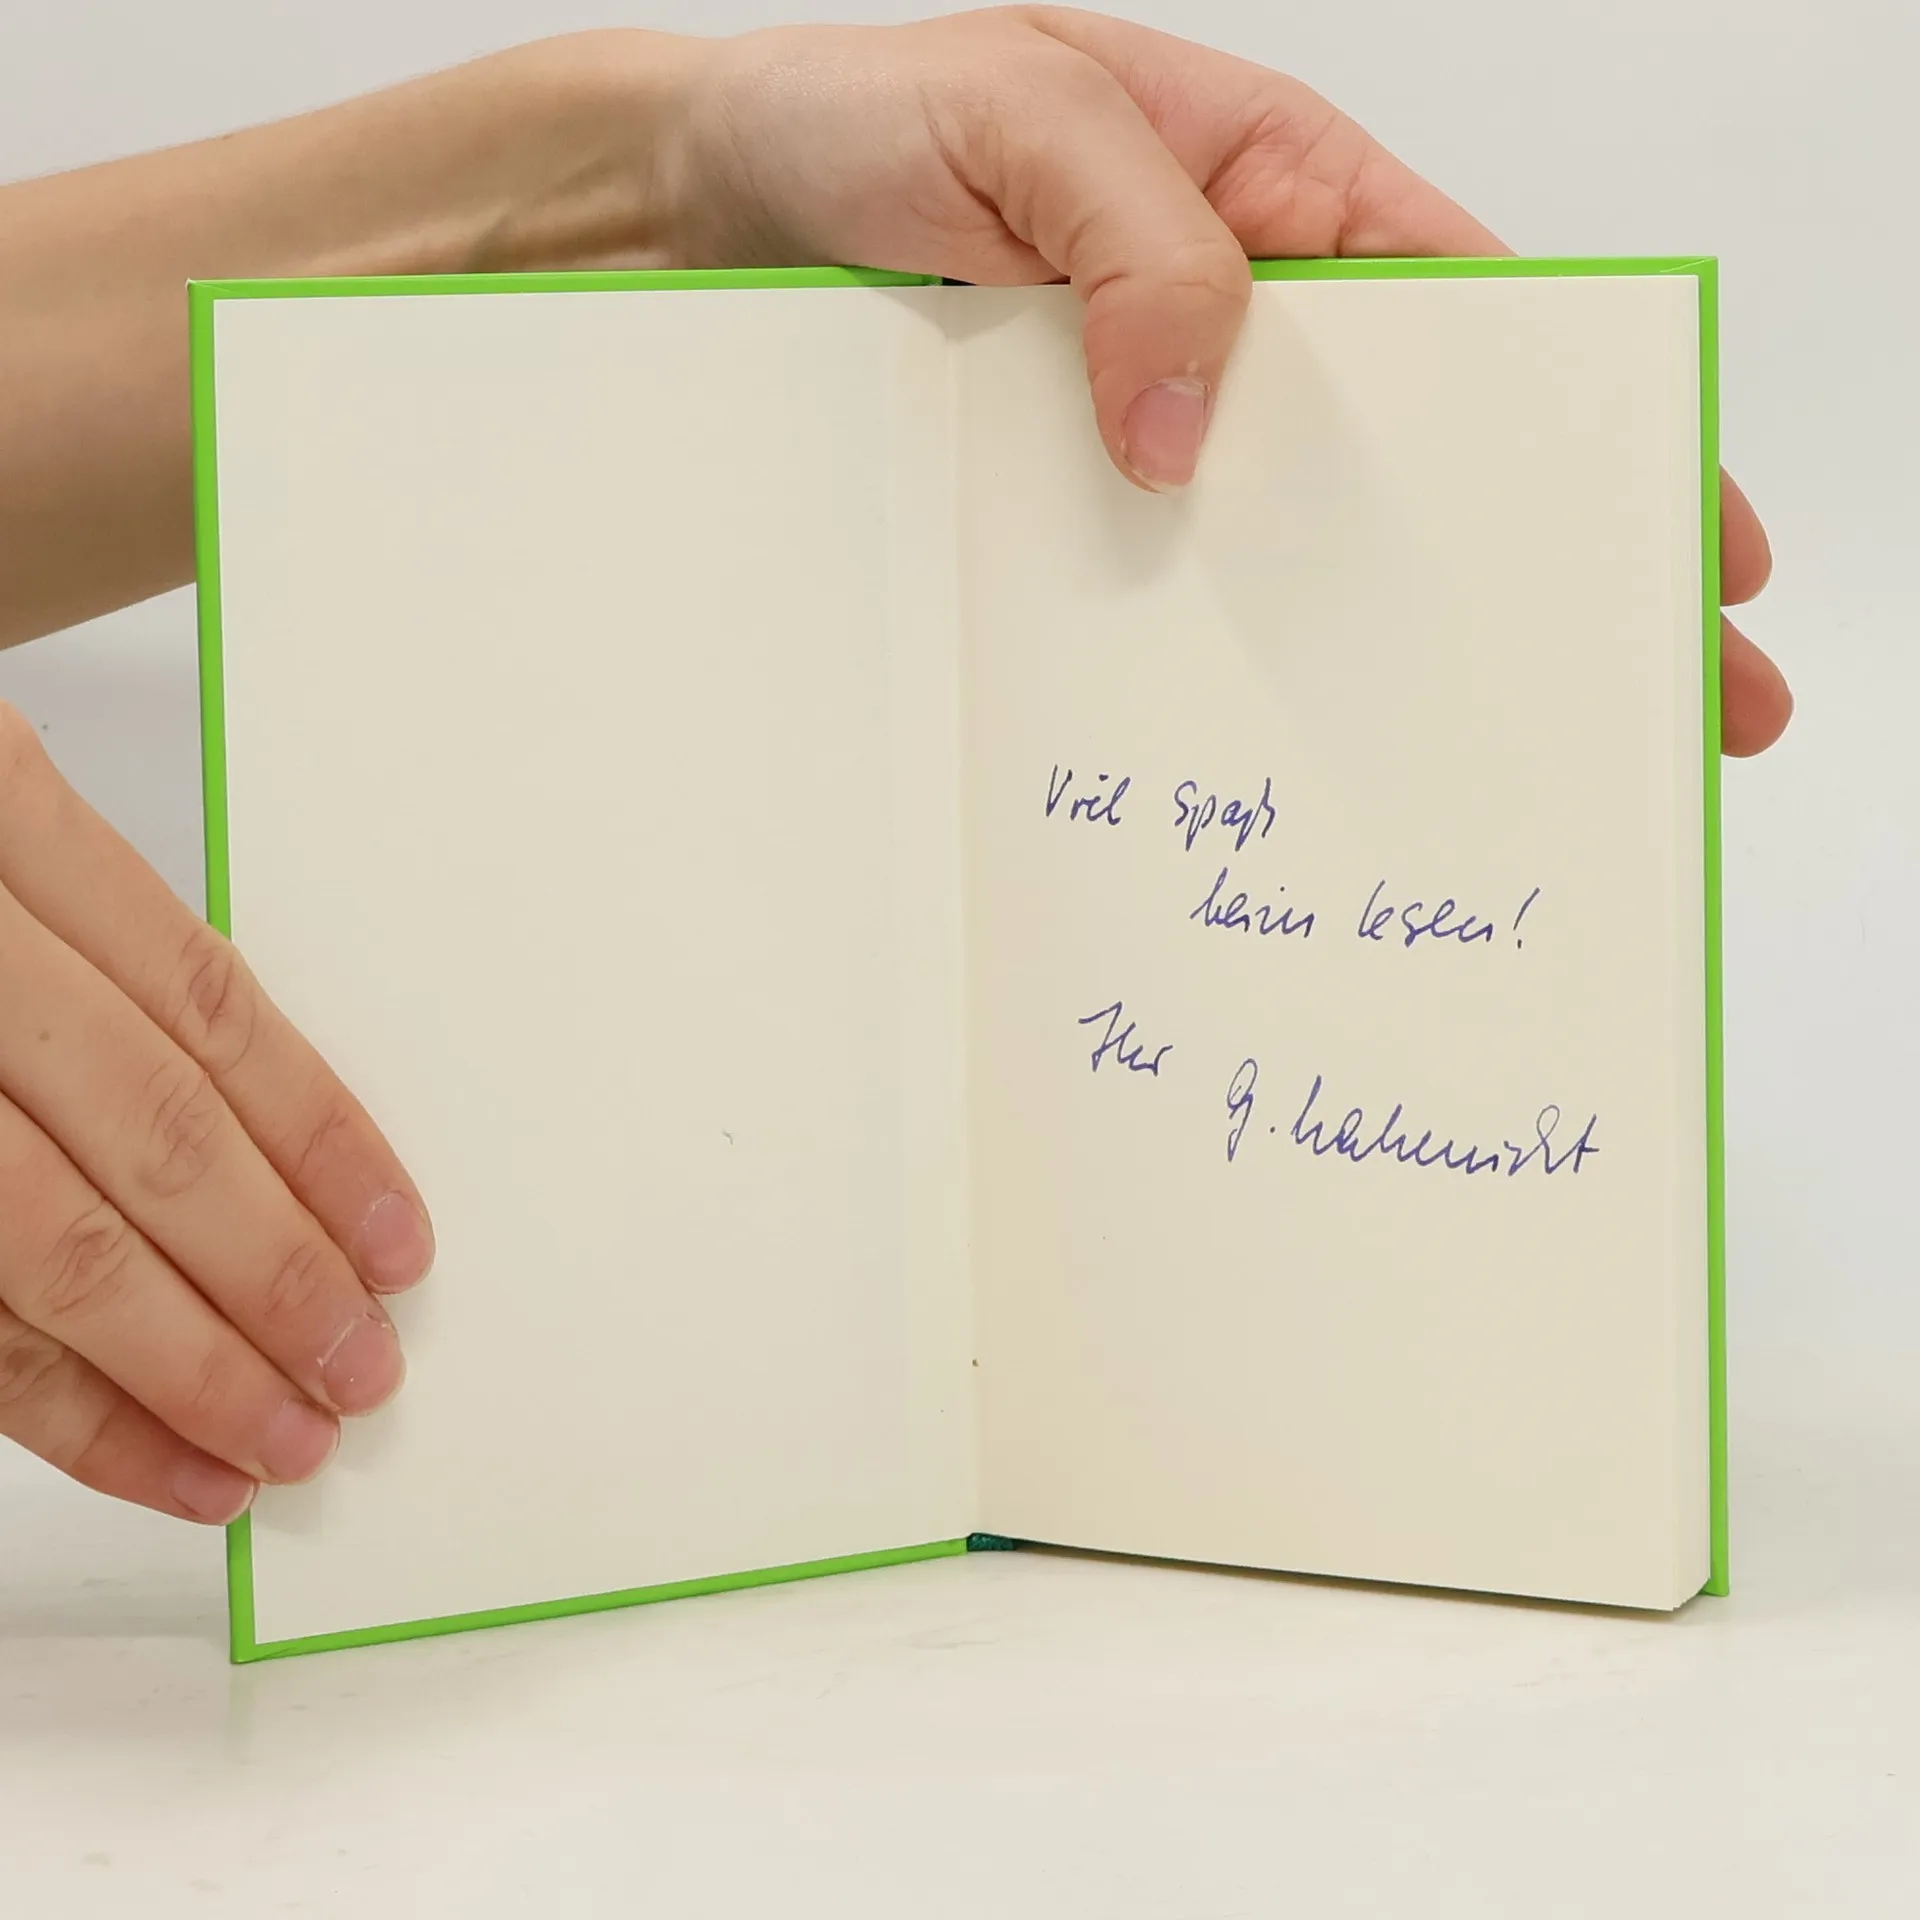 Viel Spaß
beim lesen!
Ihr G.